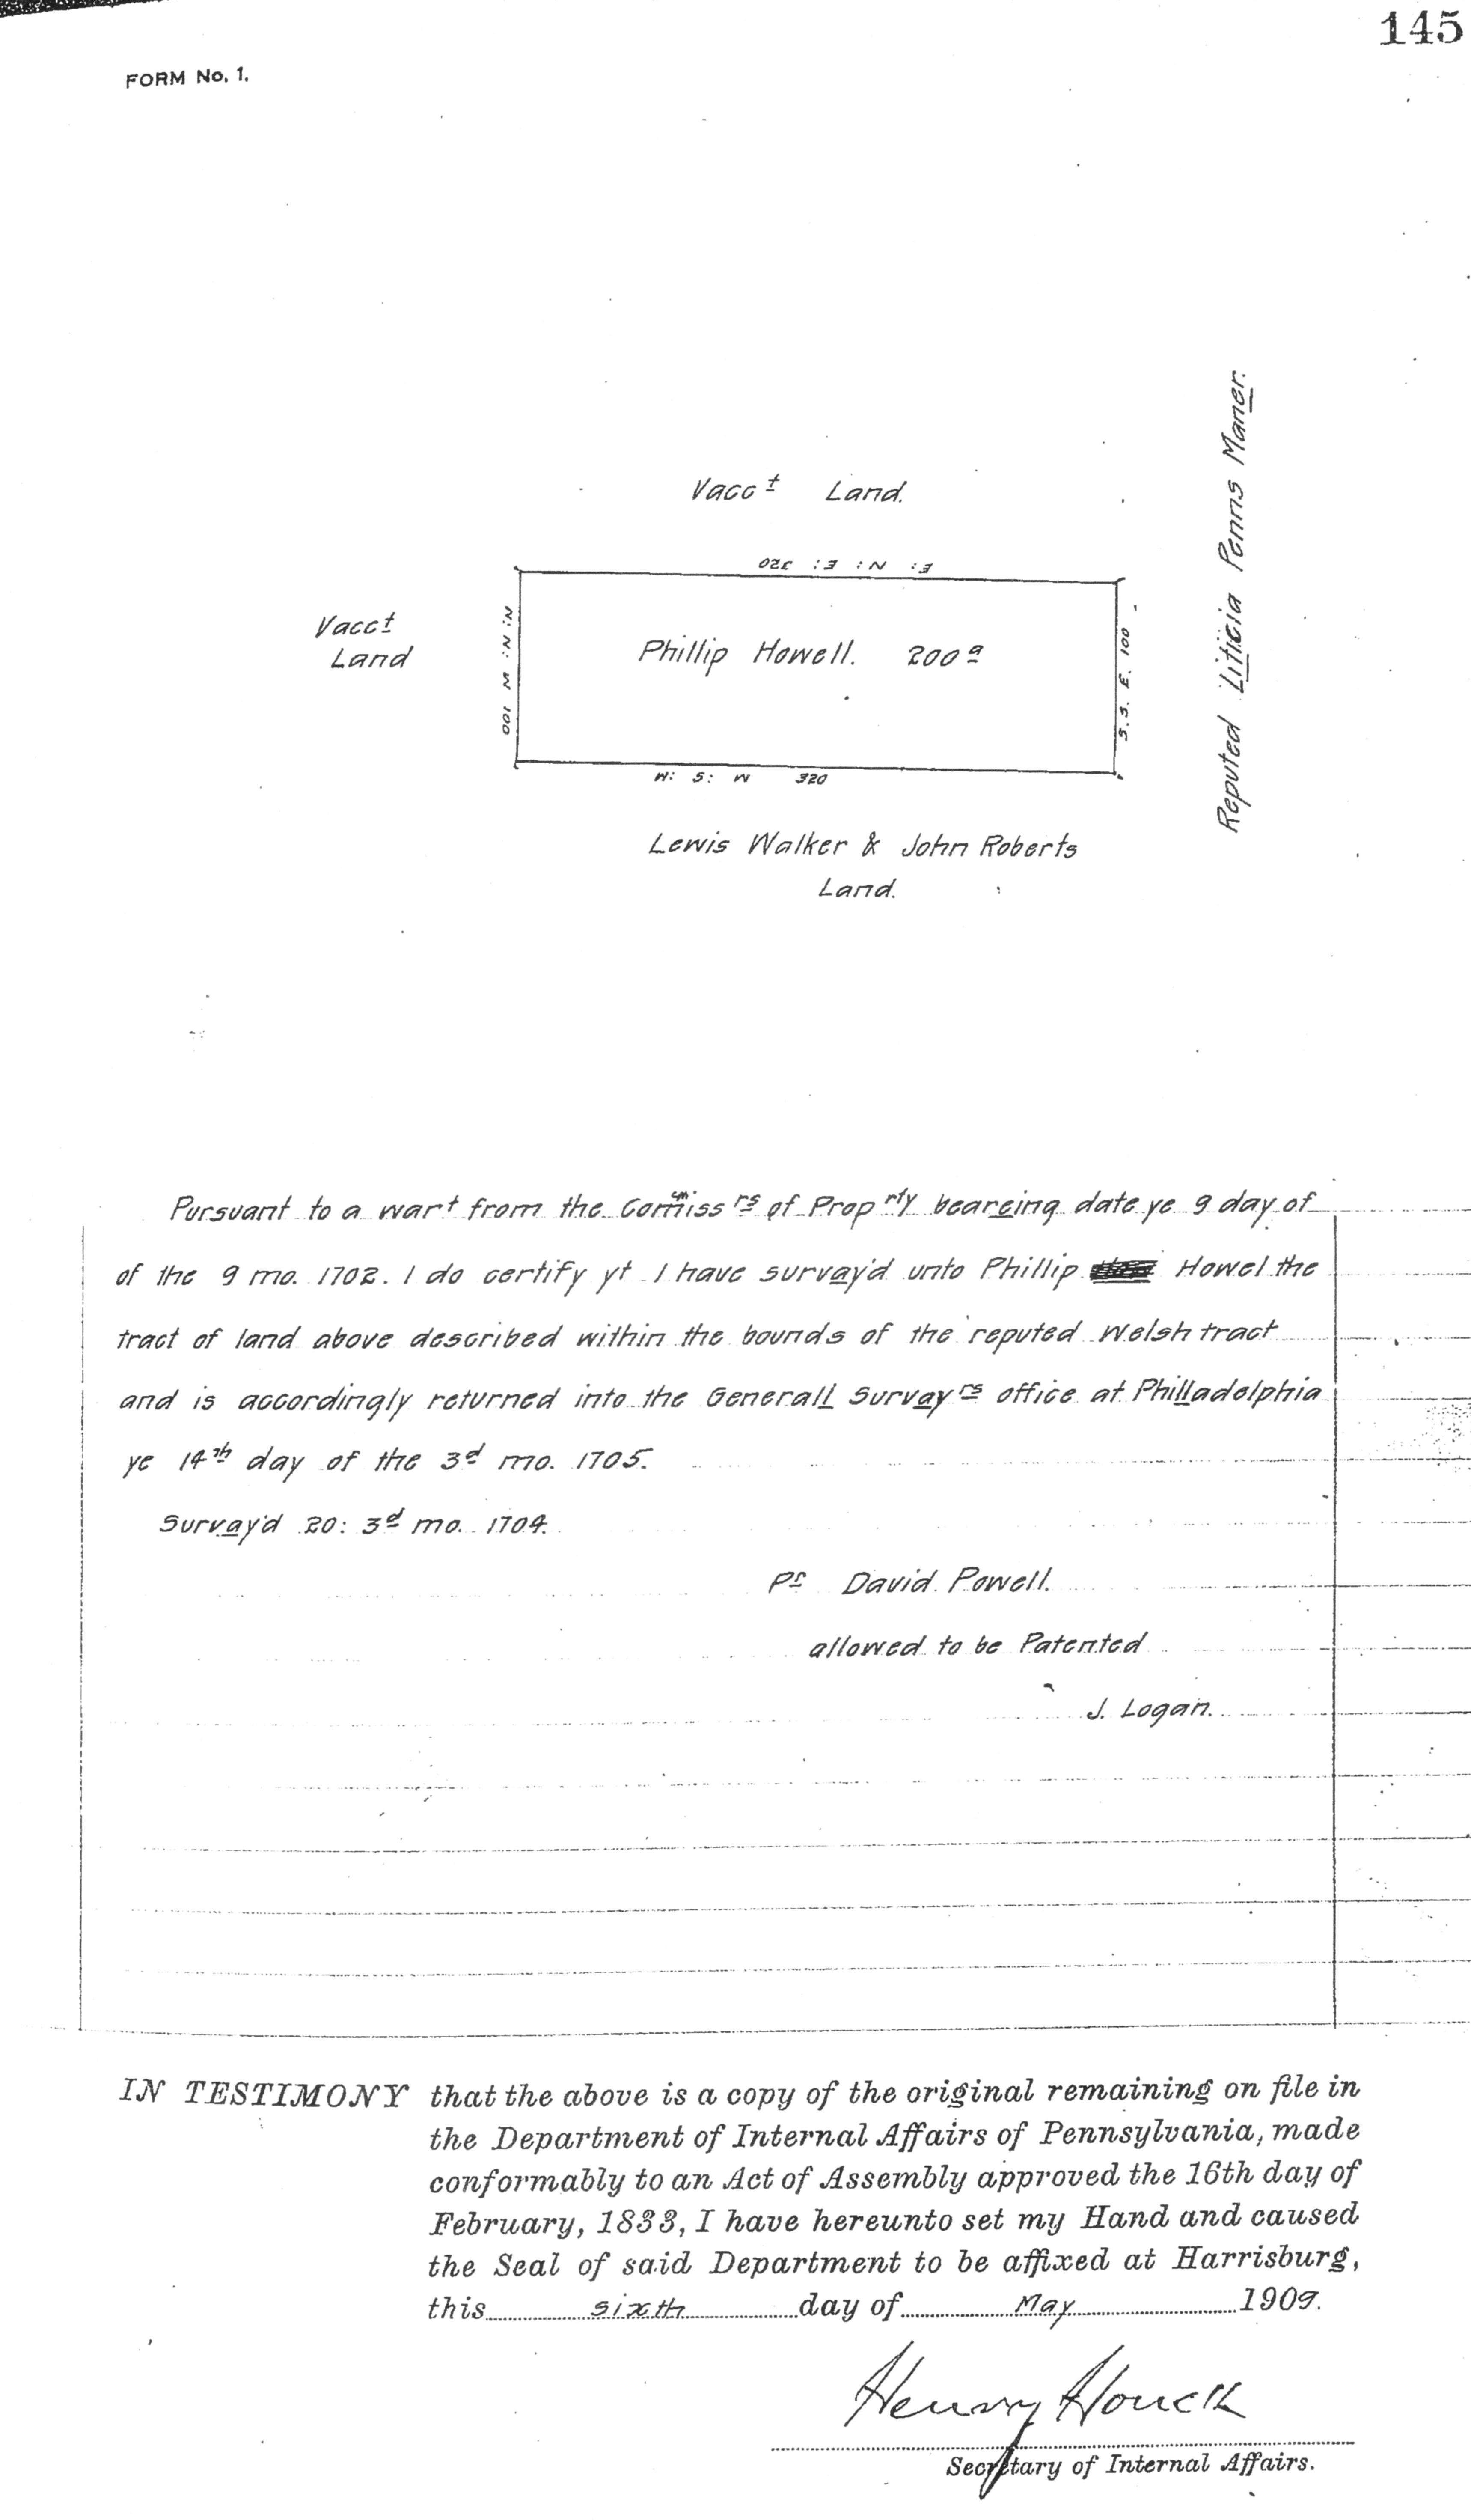 145
FORM No. 1.
Reputed Liticia Penns Maner.
Vacct Land.
E: N: E: 320
Vacct
Land
N: N: W 100
Phillip Howell. 200a
S. S. E. 100
W: S: W 320
Lewis Walker & John Roberts
Land.
Pursuant to a wart from the Com̃issrs of Proprty beareing date ye 9 day of
of the 9 mo. 1702. I do certify yt I have survay'd unto Phillip Howel the
tract of land above described within the bounds of the reputed Welsh tract
and is accordingly returned into the Generall Survayrs office at Philladelphia
ye 14th day of the 3d mo. 1705.
Survay'd 20: 3d mo. 1704.
Pr David Powell.
allowed to be Patented
J. Logan.
IN TESTIMONY that the above is a copy of the original remaining on file in
the Department of Internal Affairs of Pennsylvania, made
conformably to an Act of Assembly approved the 16th day of
February, 1833, I have hereunto set my Hand and caused
the Seal of said Department to be affixed at Harrisburg,
this sixth day of May 1909.
Henry Houck
Secretary of Internal Affairs.